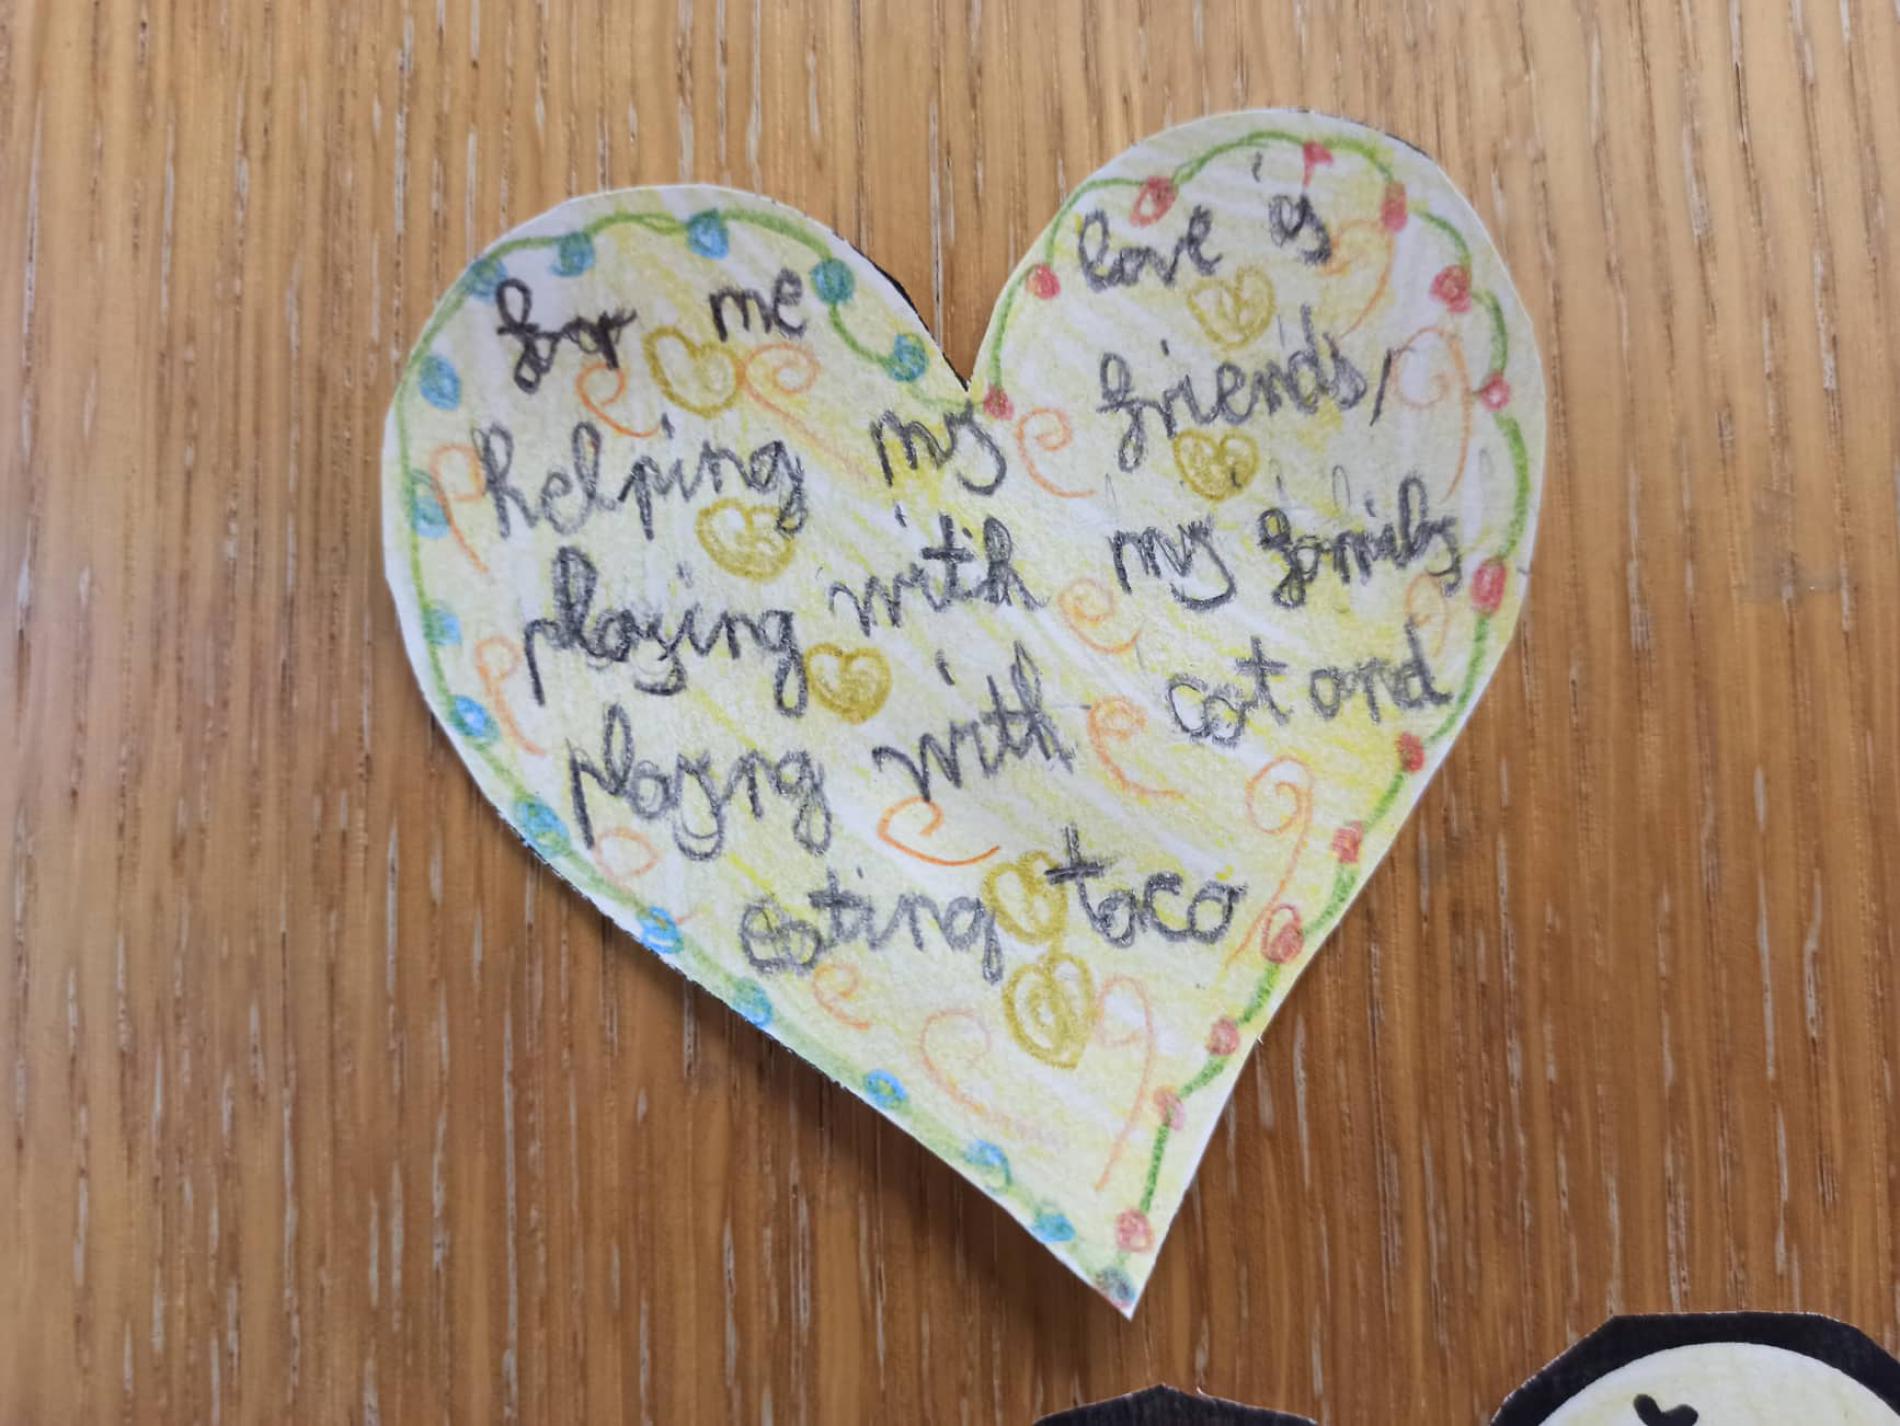 for me love is
helping my friends,
playing with my family
playing with cat and
eating taco